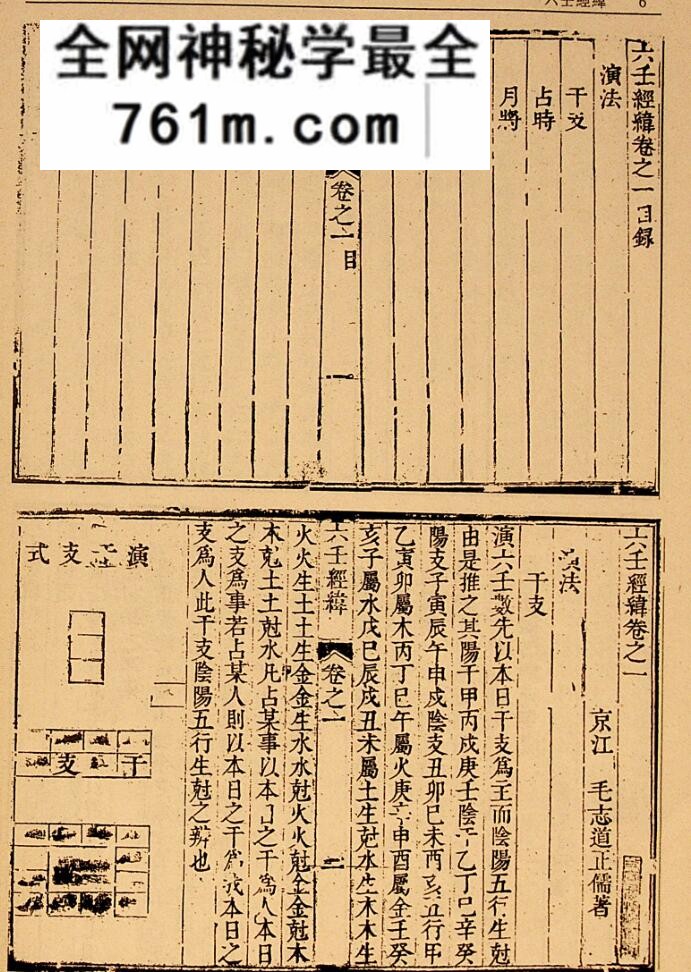 六壬經緯 6
全网神秘学最全
761m.com
六壬經緯卷之一目錄
演法
干支
占時
月將
卷之一目
一
六壬經緯卷之一
京江 毛志道正儒著
法
干支
演六壬數先以本日干支為主而陰陽五行生尅
由是推之其陽干甲丙戊庚壬陰干乙丁巳辛癸
陽支子寅辰午申戌陰支丑卯巳未酉亥五行甲
乙寅卯屬木丙丁巳午屬火庚辛申酉屬金壬癸
亥子屬水戊巳辰戌丑未屬土生尅水生木木生
六壬經緯
卷之一
火火生土土生金金生水水尅火火尅金金尅木
木尅土土尅水凡占某事以本日之干為人本日
之支為事若占某人則以本日之干為我本日之
支為人此干支陰陽五行生尅之辨也
演干支式
干支